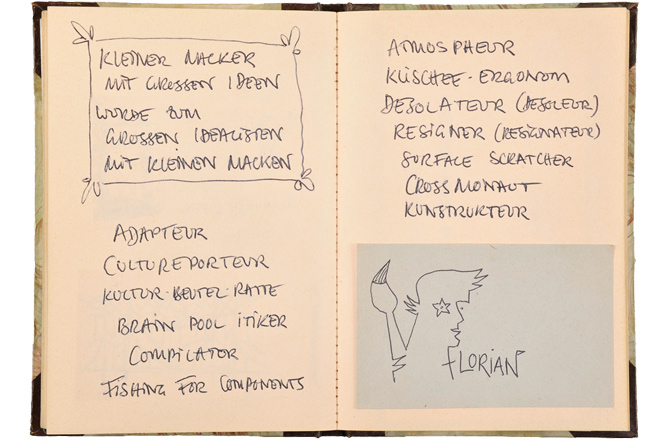 KLEINER MACKER
MIT GROSSEN IDEEN
WURDE ZUM
GROSSEN IDEALISTEN
MIT KLEINEN MACKEN
ADAPTEUR
CULTUREPORTEUR
KULTUR-BEUTEL-RATTE
BRAIN POOL ITIKER
COMPILATOR
FISHING FOR COMPONENTS
ATMOSPHEUR
KLISCHEE-ERGONOM
DESOLATEUR (DESOLEUR)
RESIGNER (RESIGNATEUR)
SURFACE SCRATCHER
CROSSMONAUT
KUNSTRUKTEUR
FLORIAN